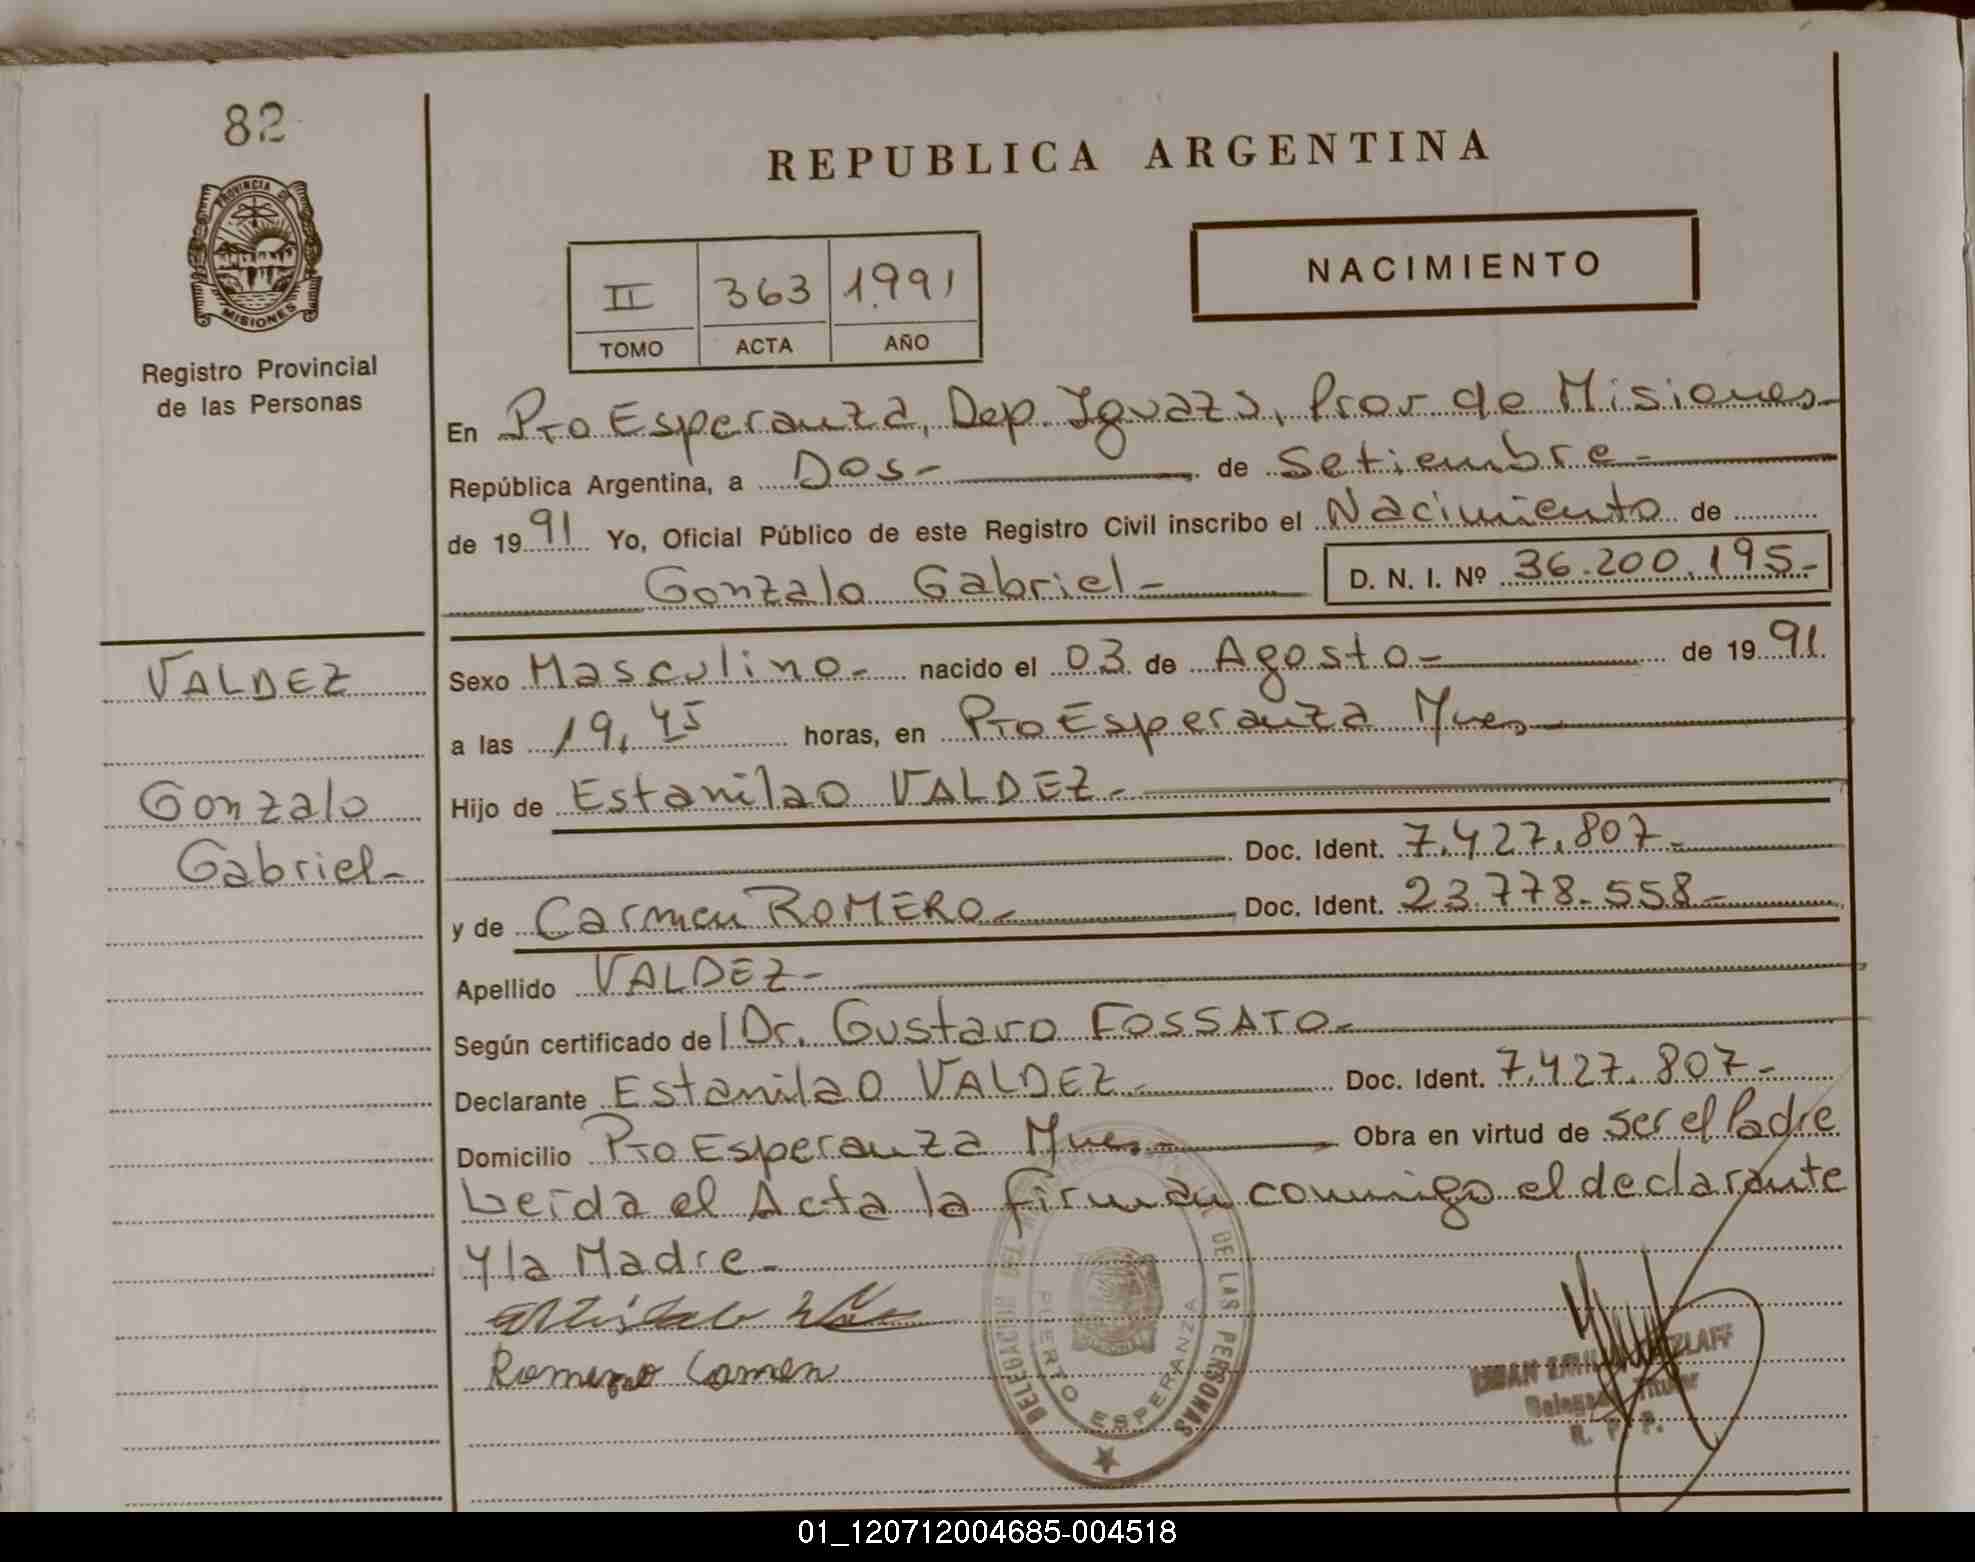 82
PROVINCIA DE
MISIONES
Registro Provincial
de las Personas
REPUBLICA ARGENTINA
II 363 1.991
TOMO ACTA AÑO
NACIMIENTO
En Pto Esperanza, Dep. Iguazú, Prov de Misiones
República Argentina, a Dos- de Setiembre-
de 1991 Yo, Oficial Público de este Registro Civil inscribo el Nacimiento de
Gonzalo Gabriel- D. N. I. Nº 36.200.195-
VALDEZ
Gonzalo
Gabriel-
Sexo Masculino- nacido el 03 de Agosto- de 1991
a las 19,45 horas, en Pto Esperanza Mnes-
Hijo de Estanilao VALDEZ-
Doc. Ident. 7.427.807-
y de Carmen ROMERO- Doc. Ident. 23.778.558-
Apellido VALDEZ-
Según certificado del Dr. Gustavo FOSSATO-
Declarante Estanilao VALDEZ- Doc. Ident. 7.427.807-
Domicilio Pto Esperanza Mnes- Obra en virtud de ser el Padre
Leída el Acta la firman conmigo el declarante
y la Madre-
Romero Carmen
DE LAS PERSONAS
PUERTO ESPERANZA
Delegado Titular
R. P. P.
01_120712004685-004518